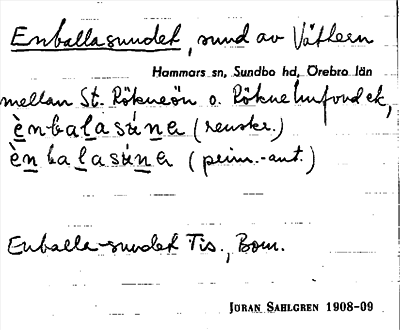 Enballasundet, sund av Vättern
Hammars sn, Sundbo hd, Örebro län
mellan St. Rökneön o.
ènbalasúna (renskr.)
ènbalasúna (prim.-ant.)
Enballa-sundet Tis., Bom.
JÖRAN SAHLGREN 1908-09